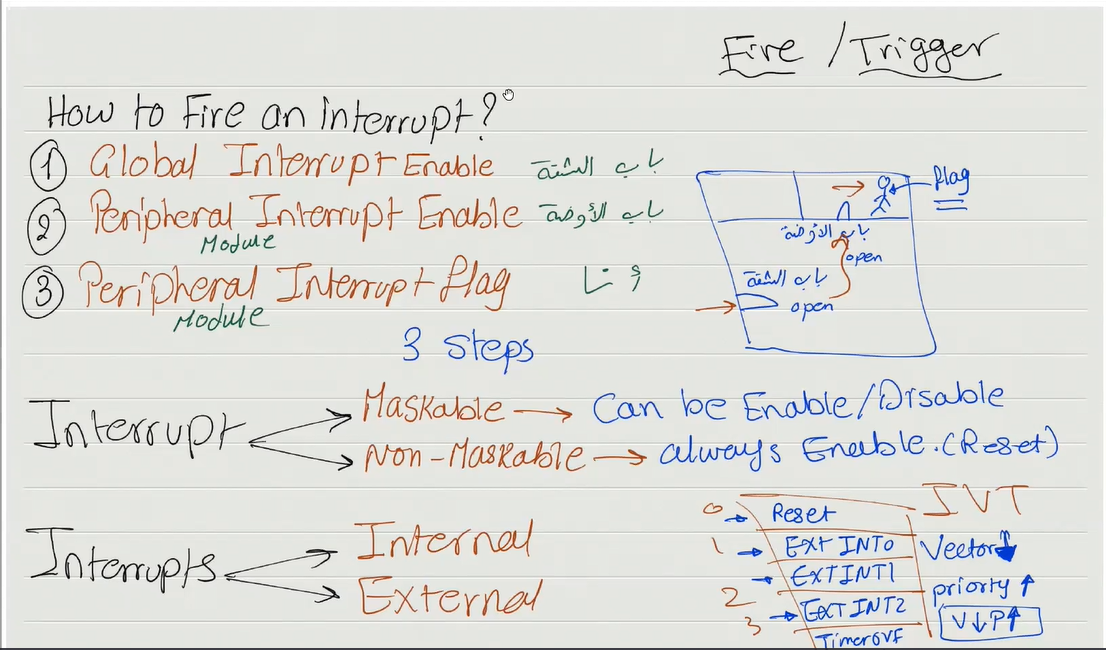 Fire / Trigger
How to Fire an interrupt?
① Global Interrupt Enable باب الشقة
② Peripheral Interrupt Enable باب الأوضة
Module
③ Peripheral Interrupt flag أنا
Module
3 Steps
flag
باب الأوضة
open
باب الشقة
open
Interrupt
Maskable → Can be Enable/Disable
Non-Maskable → always Enable.(Reset)
Interrupts
Internal
External
IVT
0 → Reset
1 → EXT INT0
→ EXTINT1
2
3 → EXT INT2
Timer OVF
Vector ↓
priorty ↑
V↓P↑